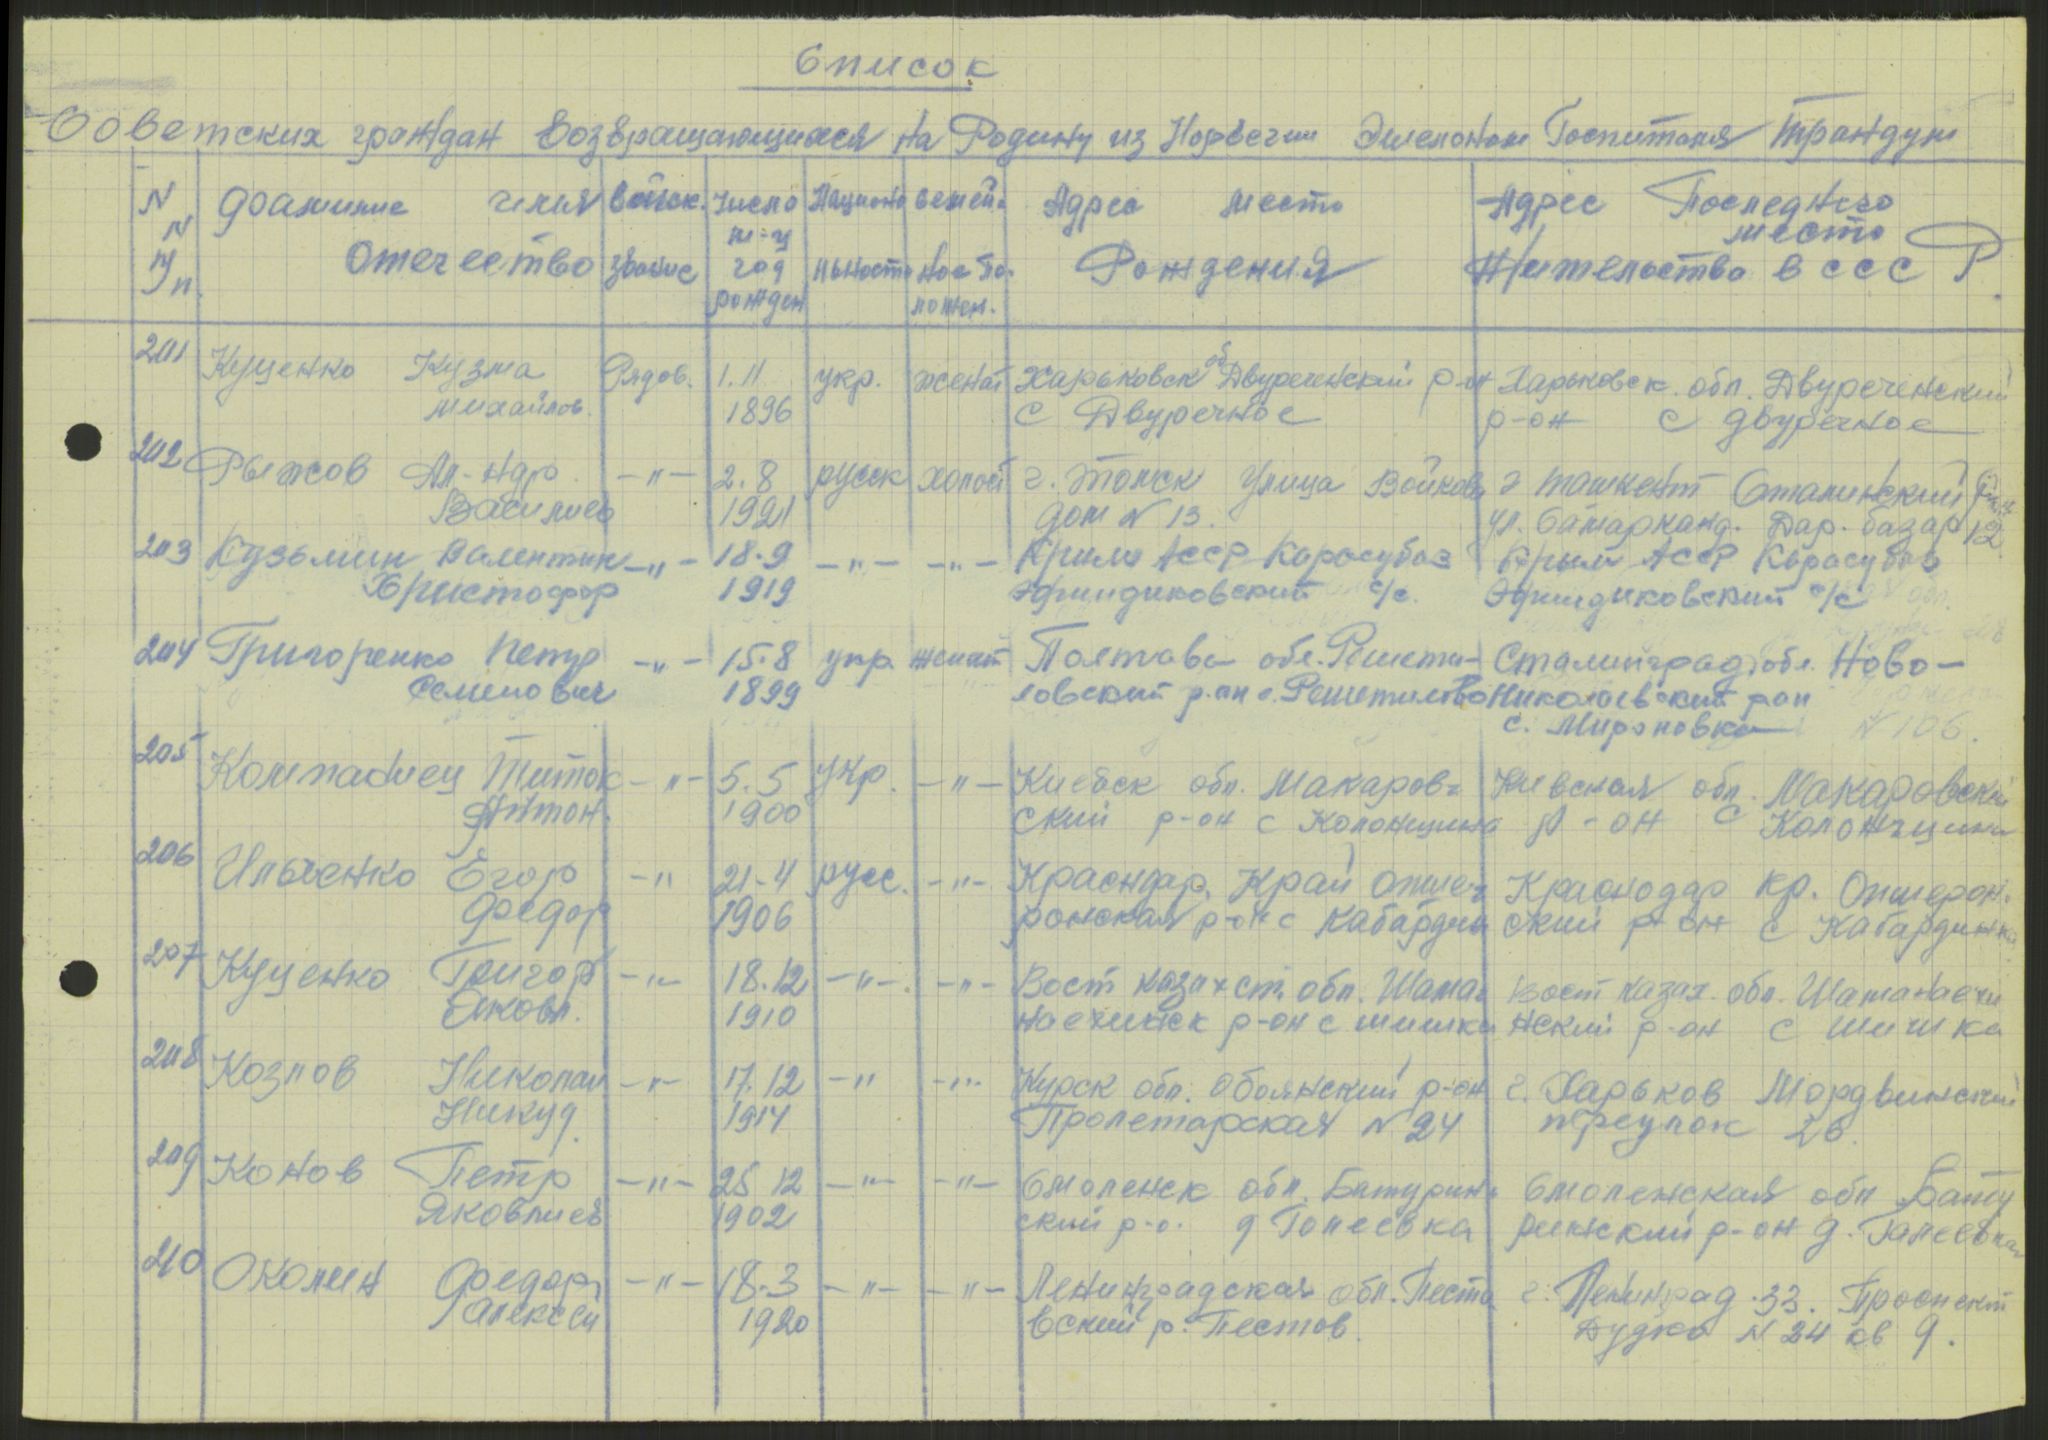 Список
Советских граждан возвращающихся на Родину из Норвегии Эшелоном Госпиталя Трандум
N N п/п. Фамилие имя Отечество | Войск. звание | Число м-ц год рожден | Национальность | Семейное положен. | Адрес место Рождения | Адрес Последнего место Жительства в СССР
201 Куценко Кузма Рядов. 1.11 укр. женат Харьковск об Двуреченский р-он Харьковск. обл. Двуреченский
Михайлов. 1896 с Двуречное р-он с Двуречное
202 Рыжов Ал-ндр. -"- 2.8 русск холост г. Томск Улица Войкова г Ташкент Сталинский
Васильев 1921 дом N 13. ул. Самарканд. Дар. базар 12
203 Кузьмин Валентин -"- 18.9 -"- -"- Крым АССР Карасубаз Крым АССР Карасубаз
Христофор 1919 с/с. с/с
204 Григоренко Петр -"- 15.8 укр женат Полтава обл. Решети- Сталинград обл. Ново-
Семенович 1899 ловский р.он с. Решетилово Николаевский рон
с. Мироновка N 106.
205 Титок -"- 5.5 Укр. -"- Киевск обл. Макаров- Киевская обл. Макаровский
Антон. 1900 ский р-он с Колонщина р-он с Колонщина
206 Ильченко Егор -"- 21-4 русс. -"- Красндар. Край Апше- Краснодар кр. Опшерон.
Федор 1906 ронская р-он с Кабардин ский р-он с Кабардинка
207 Куценко Григор -"- 18.12 -"- -"- Вост казахст. обл. Шама- Вост казах. обл. Шаманаехи
Яковл. 1910 наехинск р-он с шишка нский р-он с шишка
208 Козлов Николай -"- 17.12 -"- -"- Курск обл. Обоянский р-он г. Харьков Мордвинский
Никуд. 1914 Пролетарская N 24 переулок 26.
209 Конов Петр -"- 25 12 -"- -"- Смоленск обл. Батурин- Смоленская обл Бату
Яковлиев 1902 ский р-о. д Гопеевка ринский р-он д. Гапеевка
210 Околин Федор -"- 18.3 -"- -"- Ленинградская обл. Песто г. Ленинград 33.
Алексей 1920 вский р. Пестов. N 24 кв 9.